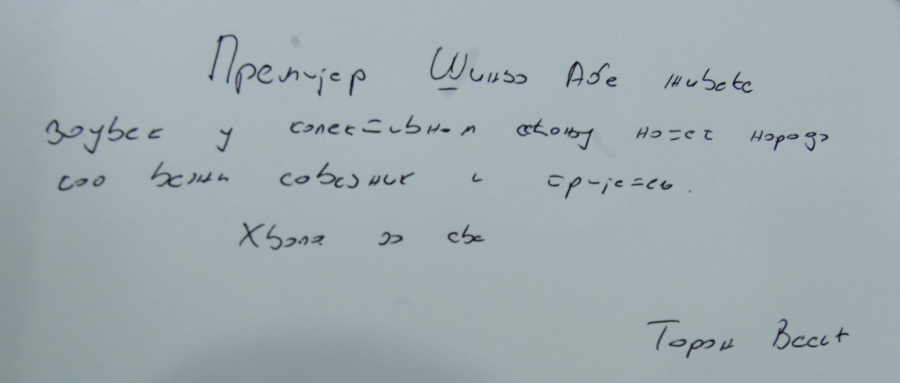 Премијер Шинзо Абе живеће
заувек у колективном сећању нашег народа
као велики савезник и пријатељ.
Хвала за све
Горан Весић